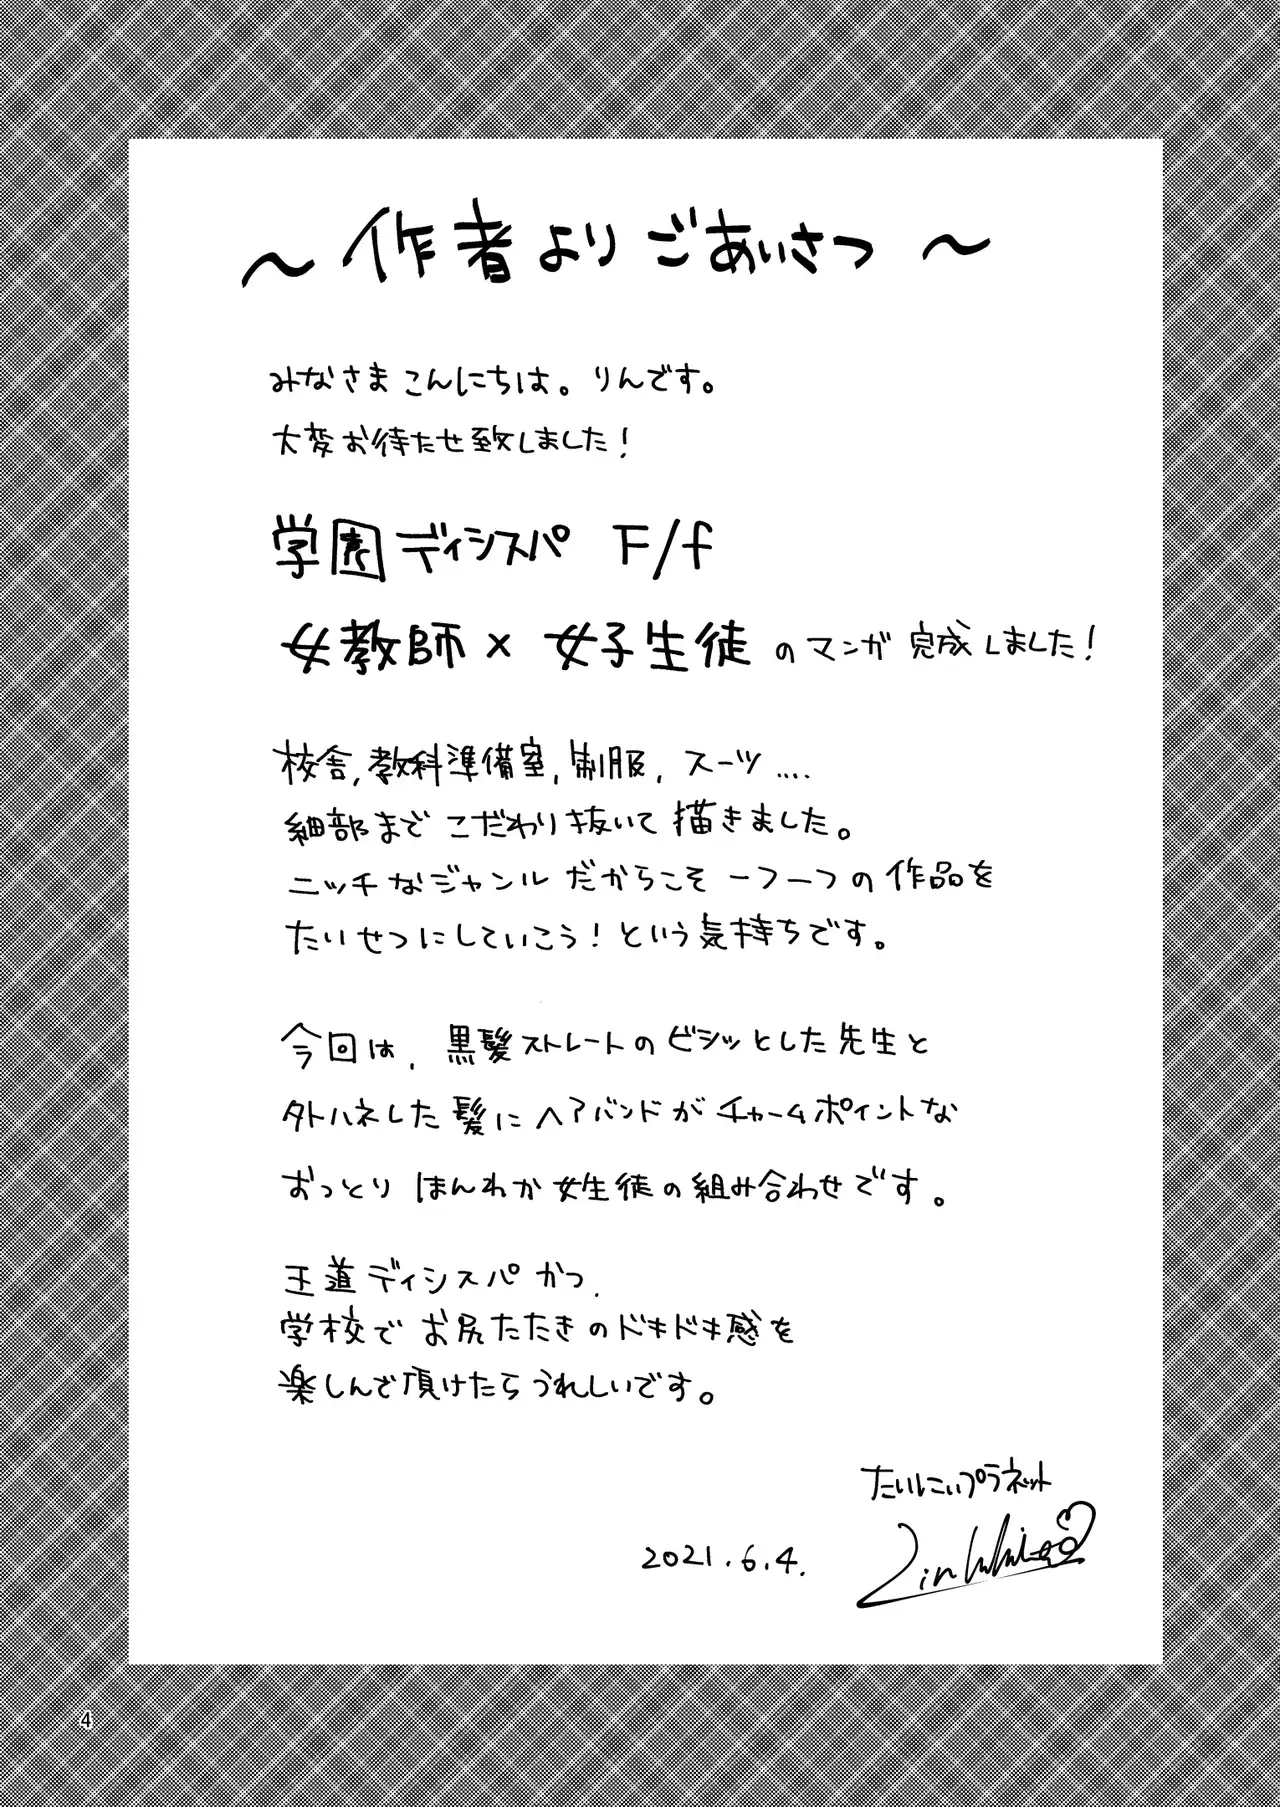 ～作者よりごあいさつ～
みなさまこんにちは。りんです。
大変お待たせ致しました！
学園ディシスパ F/f
女教師×女子生徒のマンガ完成しました！
校舎,教科準備室,制服,スーツ....
細部までこだわり抜いて描きました。
ニッチなジャンルだからこそ一つ一つの作品を
たいせつにしていこう！という気持ちです。
今回は,黒髪ストレートのビシッとした先生と
外ハネした髪にヘアバンドがチャームポイントな
おっとりほんわか女生徒の組み合わせです。
王道ディシスパかつ,
学校でお尻たたきのドキドキ感を
楽しんで頂けたらうれしいです。
たいにぃプラネット
2021.6.4.
Lin
4